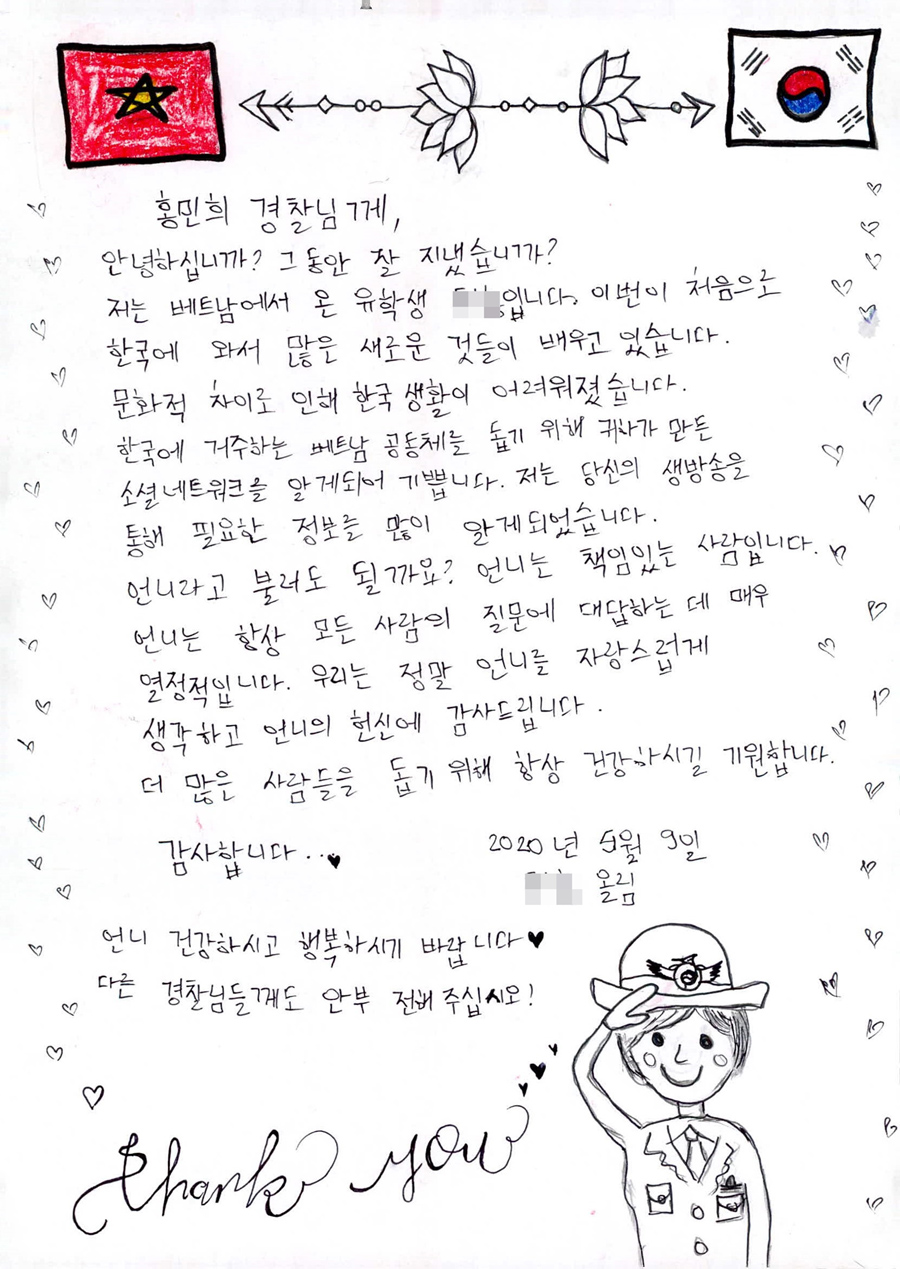 홍민희 경찰님께,
안녕하십니까? 그동안 잘 지냈습니까?
저는 베트남에서 온 유학생 입니다. 이번이 처음으로
한국에 와서 많은 새로운 것들이 배우고 있습니다.
문화적 차이로 인해 한국 생활이 어려워졌습니다.
한국에 거주하는 베트남 공동체를 돕기 위해 귀하가 만든
소셜네트워크를 알게되어 기쁩니다. 저는 당신의 생방송을
통해 필요한 정보를 많이 알게되었습니다.
언니라고 불러도 될까요? 언니는 책임있는 사람입니다.
언니는 항상 모든 사람의 질문에 대답하는 데 매우
열정적입니다. 우리는 정말 언니를 자랑스럽게
생각하고 언니의 헌신에 감사드립니다.
더 많은 사람들을 돕기 위해 항상 건강하시길 기원합니다.
감사합니다...♥
2020년 5월 9일
올림
언니 건강하시고 행복하시기 바랍니다♥
다른 경찰님들께도 안부 전해주십시오!
thank you